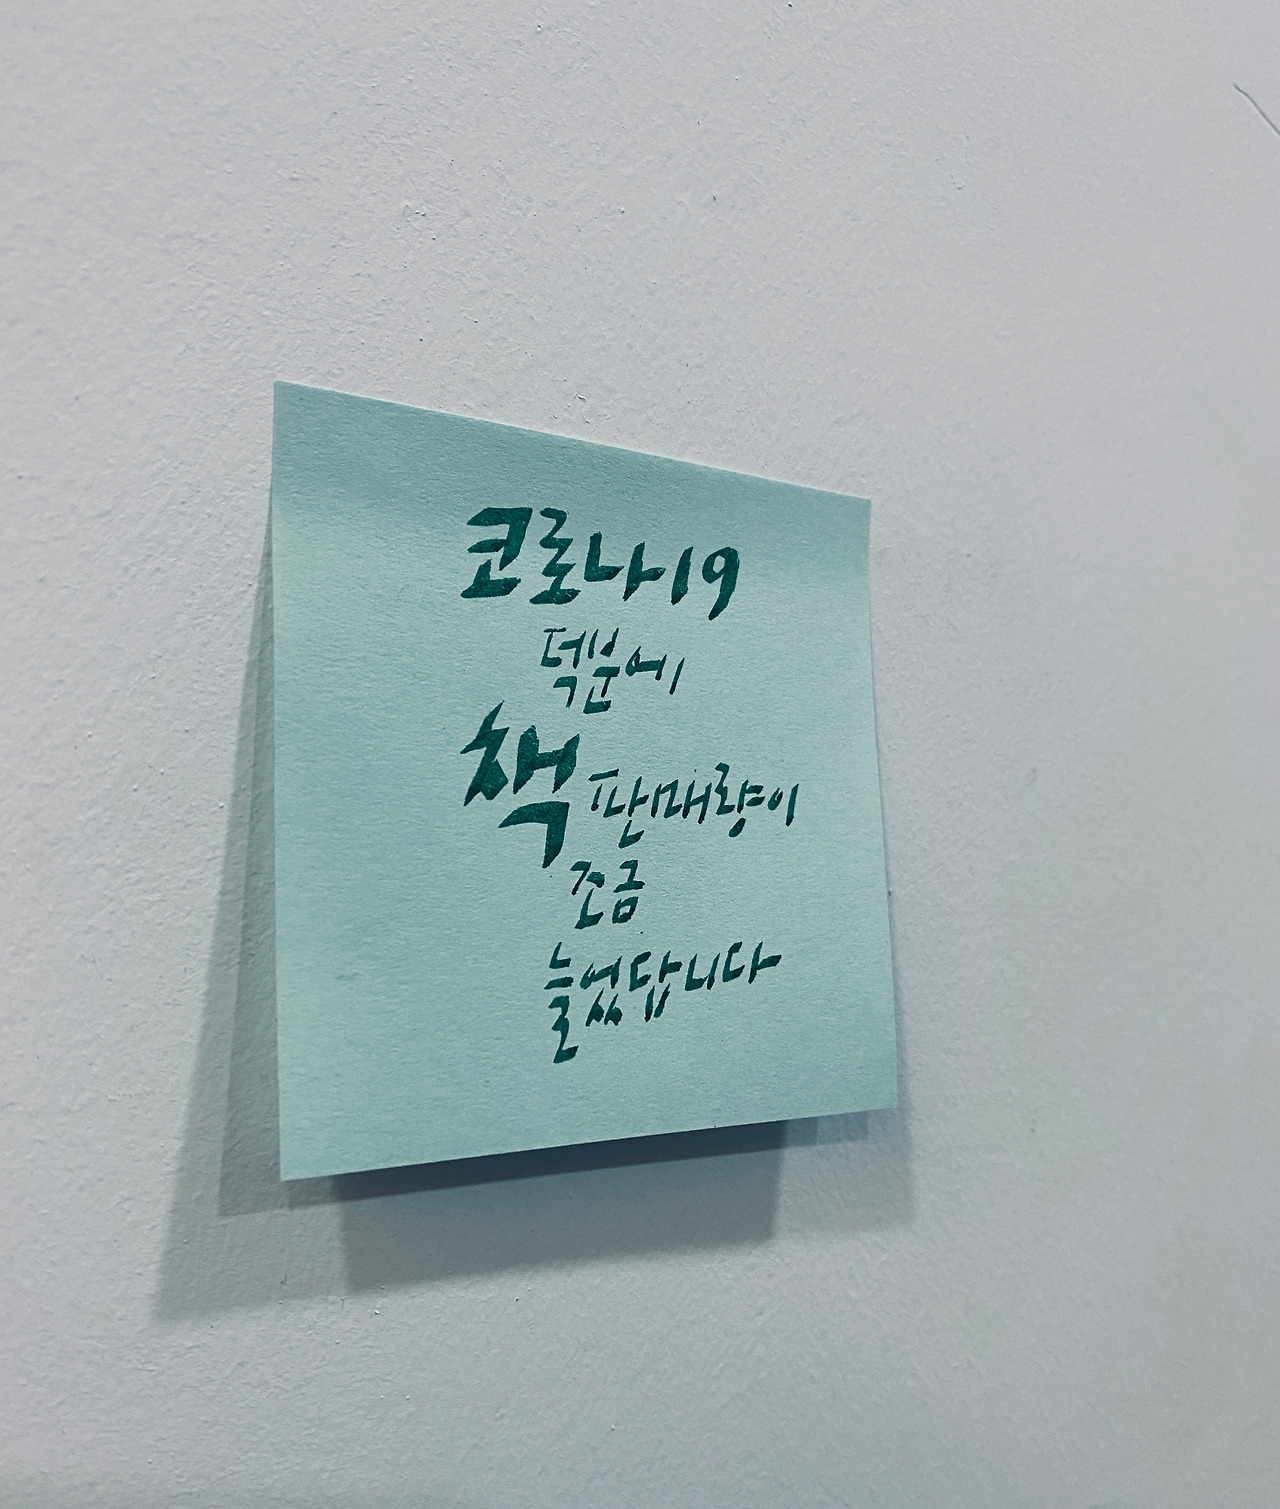 코로나19
덕분에
책 판매량이
조금
늘었답니다